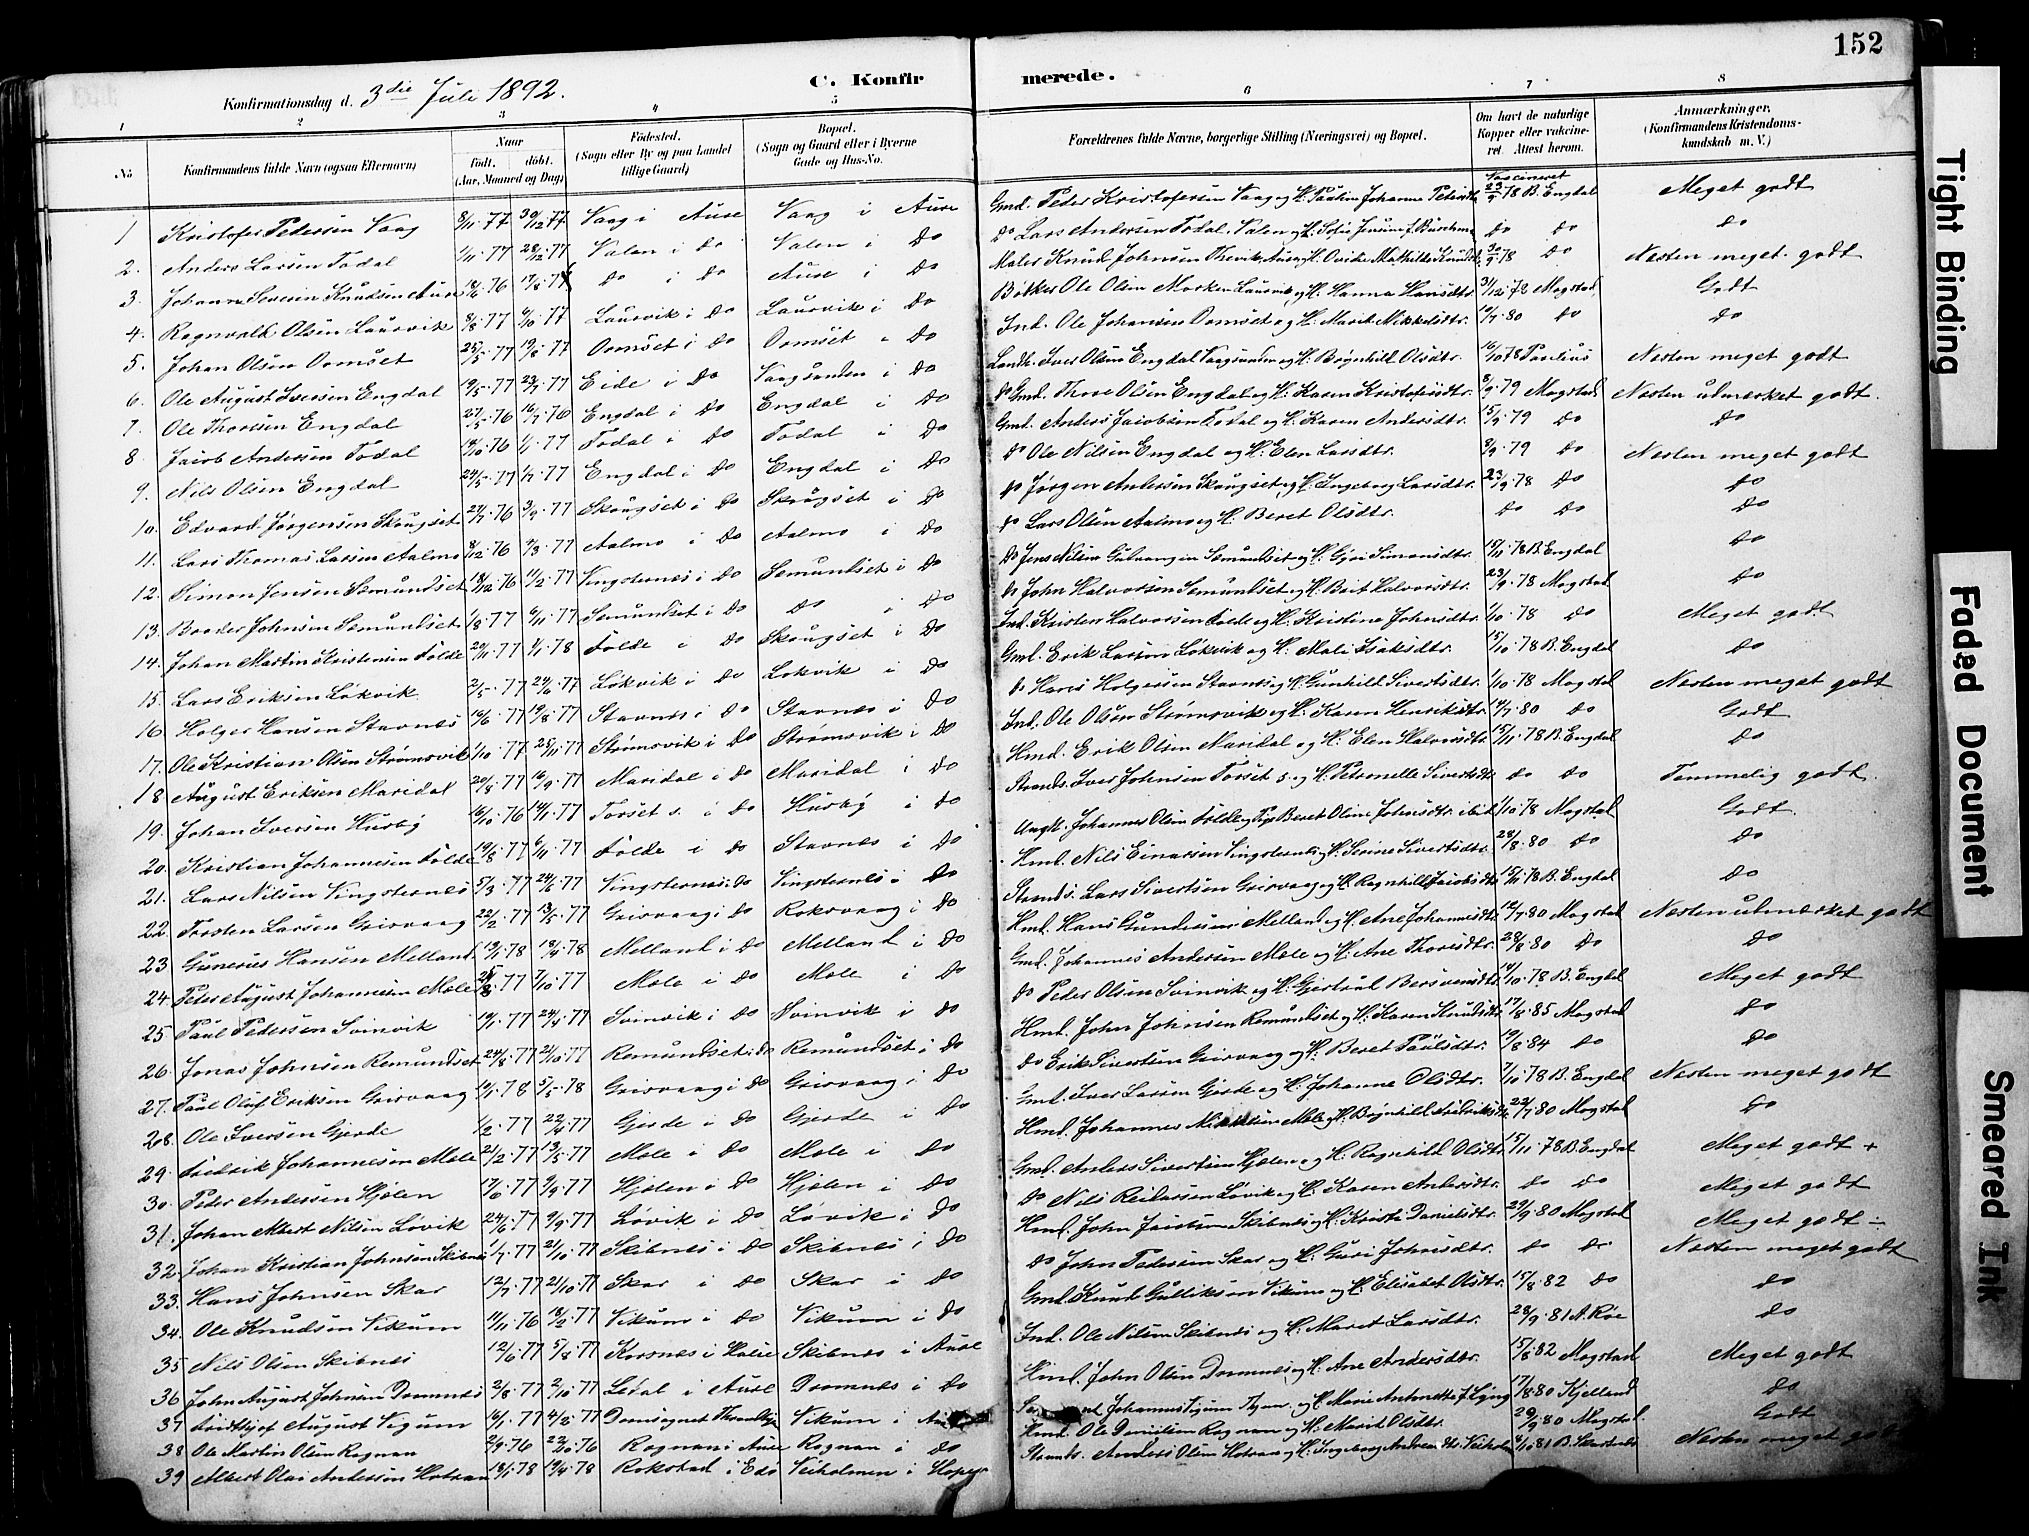 152
C. Konfirmerede.
Konfirmationsdag d. 3die Juli 1892.
1 2 3 4 5 6 7 8
No
Konfirmandens fulde Navn (ogsaa Efternavn)
Naar
født. døbt.
(Aar, Maaned og Dag)
Fødested.
(Sogn eller By og paa Landet tillige Gaard)
Bopæl.
(Sogn og Gaard eller i Byerne Gade og Hus-No.
Forældrenes fulde Navne, borgerlige Stilling (Næringsvei) og Bopæl.
Om havt de naturlige Kopper eller vakcineret. Attest herom.
Anmærkninger.
(Konfirmandens Kristendomskundskab m. V.)
1 Kristofer Pedersen Vaag 8/11.77 30/12.77 Vaag i Aure Vaag i Aure Gmd. Peder Kristofersen Vaag og H. Pauline Johanna Petersdtr Vaccineret 23/9 78 B. Engdal Meget godt
2. Anders Larsen Todal 1/11.77 28/12.77 Valen i Do Valen i Do Do Lars Andersen Todal, Valen og H. Sofie Do Do Do
3. Johann Severin Knudsen Aure 18/6.76 Do i Do Aure i Do Maler Knud Johnsen 30/9 78 Do Nesten meget godt
4. Ragnvald Olsen Laurvik 8/8.77 6/10.77 Laurvik i Do Laurvik i Do Bødker Ole Olsen H. Hanna Hansdtr. 31/12.78 Mogstad Godt
5. Johan Olsen Oomset 25/5.77 19/8.77 Oomset i Do Oomset i Do Ind. Ole Johansen Oomset og H. Marit Mikkelsdtr. 14/7.80 Do Do
6. Ole August Iversen Engdal 19/5.77 Eide i Do Vaagsanden i Do Landh. Iver Olsen Engdal Vaagsanden og H. Brynhild Olsdtr. 16/10 78 Paulius Nesten meget godt
7. Ole Thoresen Engdal 27/5.76 16/7.76 Engdal i Do Engdal i Do Gmd. Thore Olsen Engdal og H. Karen Kristofersdtr 8/9.79 Mogstad Nesten udmerket godt.
8. Jacob Andersen Todal 19/10.76 1/1.77 Todal i Do Todal i Do Gmd. Anders Jacobsen Todal og H. Karen Andersdtr. 15/9.79 Do Do
9. Nils Olsen Engdal 24/5.77 1/7.77 Engdal i Do Engdal i Do Do Ole Nilsen Engdal og H. Elen Larsdtr. 8/9.79 Do Nesten meget godt
10. Edvard Jørgensen Skougset 27/7.76 3/9.77 Skougset i Do Skrugset i Do Do Jørgen Andersen Skougset og H. Ingeborg Larsdtr. 23/9.78 Do Do
11. Lars Thomas Larsen Aalmo 8/12.76 4/3.77 Aalmo i Do Aalmo i Do Do Lars Olsen Aalmo og H. Beret Olsdtr. Do Do Do
12. Simon Jensen Semundset 18/12.76 11/2.77 Vingsternes i Do Semundset i Do Do Jens Nilsen Semundset og H. Gjøri Simonsdtr. 15/11.78 B. Engdal Do
13. Baarder Johnsen Semundset 1/8.77 6/11.77 Semundset i Do Do i Do Do John Halvorsen Semundset og H. Berit Halvorsdtr. 23/9.78 Mogstad Do
14. Johan Martin Kristensen Folde 29/11.77 1/1.78 Folde i Do Skougset i Do Ind. Kristen Halvorsen Folde og H. Kristine Johnsdtr. 1/10.78 Do Meget godt
15. Lars Eriksen Løkvik 2/5.77 24/6.77 Løkvik i Do Løkvik i Do Gmd. Erik Larsen Løkvik og H. Mali Isaksdtr. 15/10.78 B. Engdal Do
16 Holger Hansen Stavnes 16/6.77 19/8.77 Stavnes i Do Stavnes i Do Do Hans Holgersen Stavnes og H. Gunhild Sivertsdtr. 1/10.78 Mogstad Nesten meget godt
17. Ole Kristian Olsen Strømsvik 1/10.77 25/11.77 Strømsvik i Do Strømsvik i Do Ind. Ole Olsen Strømsvik og H. Karen Henriksdtr. 14/7.80 Do Godt
18 August Eriksen Maridal 20/8.77 16/9.77 Maridal i Do Maridal i Do Hmd. Erik Olsen Maridal og H. Elen Halvorsdtr. 15/11.78 B. Engdal Do
19. Johan Iversen Husby 16/10.76 14/1.77 Torset s. i Do Husby i Do Strands. Iver Johnsen Torset s. og H. Petronelle Sivertsdtr. Do Do Temmelig godt.
20. Kristian Johannesen Folde 19/8.77 6/11.77 Folde i Do Stavnes i Do Ungk. Johannes Olsen Folde og Pige Beret Oline Johnsdtr. ibid. 1/10.78 Mogstad Godt.
21. Lars Nilsen Vingsternes 5/3.77 24/6.77 Vingsternes i Do Vingsternes i Do Hmd. Nils Einarsen Vingsternes og H. Serine Sivertsdtr. 28/8.80 Do Do
22. Torsten Larsen Grisvaag 22/2.77 13/5.77 Grisvaag i Do Roksvaag i Do Strands. Lars Sivertsen Grisvaag og H. Ragnhild Jacobsdtr. 15/11.78 B. Engdal Do
23 Gunerius Hansen Melland 13/1.78 18/4.78 Melland i Do Melland i Do Hmd. Hans Gundersen Melland og H. Ane Johannesdtr. 12/7.80 Mogstad Nesten udmerket godt
24. Peter August Johannesen Mæle 7/10.77 Mæle i Do Mæle i Do Gmd. Johannes Andersen Mæle og H. Ane Thoresdtr. 28/8.80 Do Do
25 Paul Pedersen Svinvik 19/1.77 24/4.77 Svinvik i Do Svinvik i Do Do Peder Olsen Svinvik og H. Gjertrud Bersvendsdtr. 14/10.78 B. Engdal Meget godt
26. Jonas Johnsen Remundset 24/8.77 21/10.77 Remundset i Do Remundset i Do Hmd. John Johnsen Remundset og H. Karen Knudsdtr. 17/8.85 Mogstad Do
27. Paul Oluf Eriksen Grisvaag 14/1.78 5/5.78 Grisvaag i Do Grisvaag i Do Do Erik Sivertsen Grisvaag og H. Beret Paulsdtr. 19/8.84 Do Do
28. Ole Iversen Gjerde 1/2.77 22/4.77 Gjerde i Do Gjerde i Do Gmd. Iver Larsen Gjerde og H. Johanne Olsdtr. 7/10.78 B. Engdal Nesten meget godt
29. Fredrik Johannesen Mæle 21/2.77 13/5.77 Mæle i Do Mæle i Do Hmd. Johannes Mikkelsen Mæle og H. Brynhild Fredriksdtr. 22/7.80 Mogstad Do
30. Peter Andersen Hjælen 17/6.77 9/9.77 Hjælen i Do Hjælen i Do Gmd. Anders Sivertsen Hjælen og H. Ragnhild Olsdtr. 15/11.78 B. Engdal Meget godt +
31. Johan Albert Nilsen Løvik 24/6.77 9/9.77 Løvik i Do Løvik i Do Do Nils Reidarsen Løvik og H. Karen Andersdtr. Do Do Meget godt
32. Johan Kristian Johnsen Skibnes 1/7.77 21/10.77 Skibnes i Do Skibnes i Do Hmd. John Skibnes og H. Kristi Danielsdtr. 29/9.80 Mogstad Meget godt ÷
33. Hans Johnsen Skar 12/7.77 21/10.77 Skar i Do Skar i Do Do John Pedersen Skar og H. Guri Johnsdtr. Do Do Nesten meget godt
34. Ole Knudsen Vikum 14/11.76 18/2.77 Vikum i Do Vikum i Do Gmd. Knud Gulliksen Vikum og H. Elisabet Olsdtr. 15/8.82 Do Do
35 Nils Olsen Skibnes 12/6.77 5/8.77 Korsnes i Halse Skibnes i Aure Ind. Ole Nilsen Skibnes og H. Maret Larsdtr. 28/9.81 A. Røe Do
36 John August Johnsen Dromnes 2/8.77 2/10.77 Ledal i Aure Dromnes i Do Hmd. John Olsen Dromnes og H. Ane Andersdtr. 15/8.82 Mogstad Meget godt
37 Fridthjof August Vigum 14/1.77 4/2.77 Domsognet Vikum i Johannes Vigum og H. Marie Antonette f. Lyng 17/8.80 Kjelland Do
38 Ole Martin Olsen Rognan 2/9.76 22/10.76 Rognan i Aure Rognan i Do Hmd. Ole Danielsen Rognan og H. Marit Olsdtr. 29/9.80 Mogstad. Godt
39 Albert Olai Andersen 18/1.78 19/4.78 Rokstad i Edø Veiholmen i Strands. Anders Olsen og H. Ingeborg Andreasdtr. 81 B. Nesten meget
Tight Binding
Faded Document
Smeared Ink